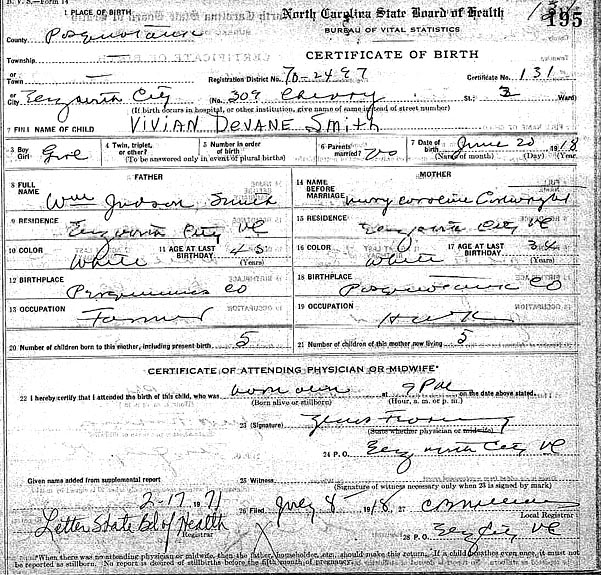 North Carolina State Board of Health
BUREAU OF VITAL STATISTICS
195
1 PLACE OF BIRTH
County Pasquotank
CERTIFICATE OF BIRTH
Township —
or Town —
Registration District No. 70-2497 Certificate No. 131
or City Elizabeth City (No. 309 Cherry St.; 3 Ward)
(If birth occurs in hospital, or other institution, give name of same instead of street number)
2 FULL NAME OF CHILD VIVIAN DeVANE Smith
3 Boy Girl Girl
4 Twin, triplet, or other?
5 Number in order of birth
(To be answered only in event of plural births)
6 Parents married?
7 Date of birth June 20 1918
(Name of month) (Day) (Year)
FATHER
8 FULL NAME Wm Judson Smith
9 RESIDENCE Elizabeth City NC
10 COLOR White
11 AGE AT LAST BIRTHDAY 45 (Years)
12 BIRTHPLACE Perquimans CO
13 OCCUPATION Farmer
20 Number of children born to this mother, including present birth 5
MOTHER
14 NAME BEFORE MARRIAGE Mary Caroline Cartwright
15 RESIDENCE Elizabeth City NC
16 COLOR White
17 AGE AT LAST BIRTHDAY 34 (Years)
18 BIRTHPLACE Pasquotank CO
19 OCCUPATION
21 Number of children of this mother now living 5
CERTIFICATE OF ATTENDING PHYSICIAN OR MIDWIFE*
22 I hereby certify that I attended the birth of this child, who was born alive at 9 P M on the date above stated.
(Born alive or stillborn) (Hour, a. m. or p. m.)
23 (Signature)
(State whether physician or midwife)
24 P. O. Elizabeth City NC
Given name added from supplemental report
25 Witness
(Signature of witness necessary only when 23 is signed by mark)
2-17 1971
26 Filed July 8 1918 27
Local Registrar
Letter State Bd of Health
Registrar
28 P. O. Eliz City NC
*When there was no attending physician or midwife, then the father, householder, etc., should make this return. If a child breathes even once, it must not
be reported as stillborn. No report is desired of stillbirths before the fifth month of pregnancy.